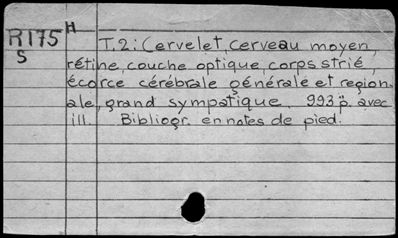 R175 H T.2: Cervelet, cerveau moyen,
S rétine, couche optique, corps strié,
écorce cérébrale générale et region-
ale, grand sympatique. 993 p. avec
ill. Bibliogr. en notes de pied.